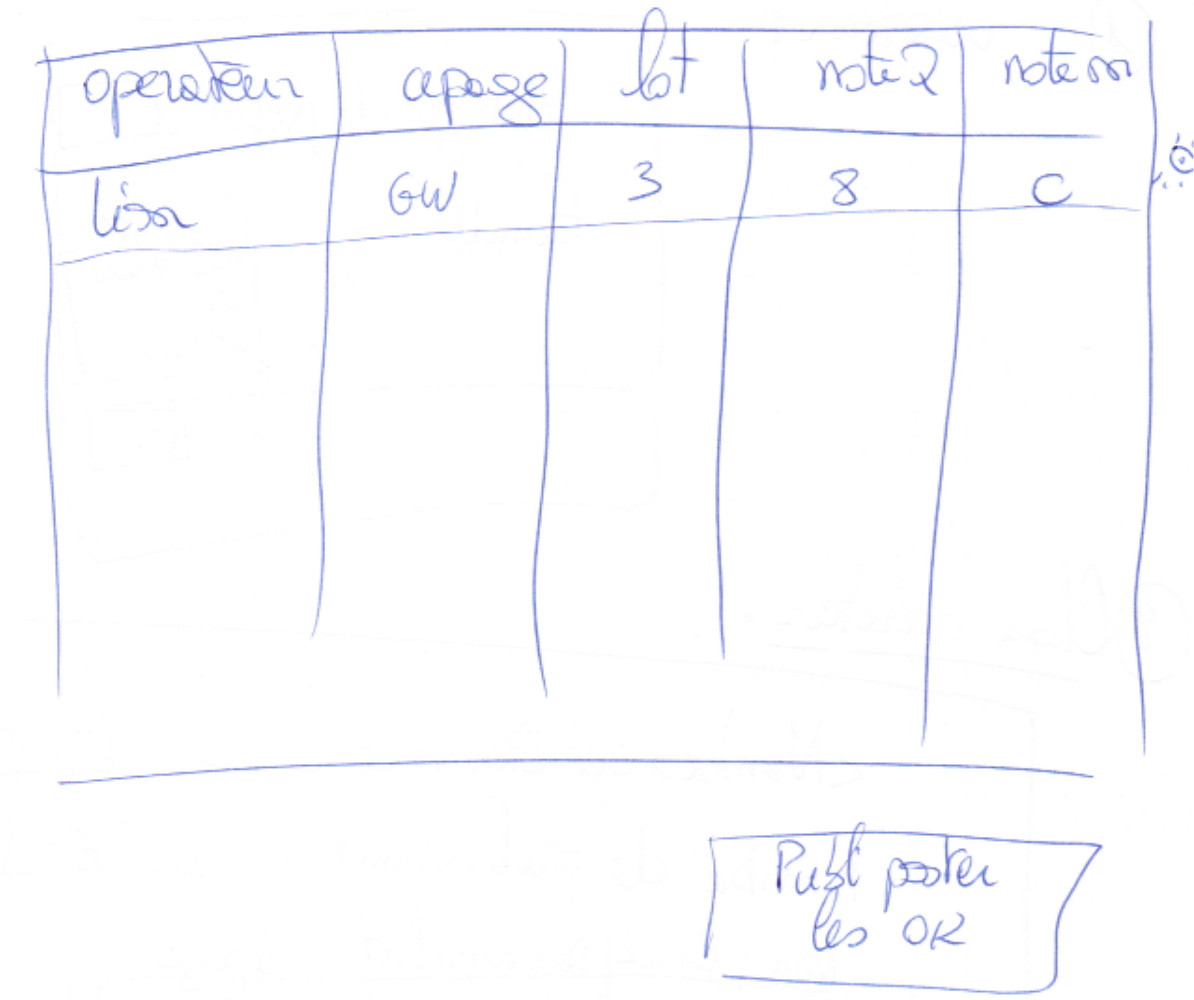 operateur cepage lot note 2 note m
lison GW 3 8 C
Publiposter
les OK